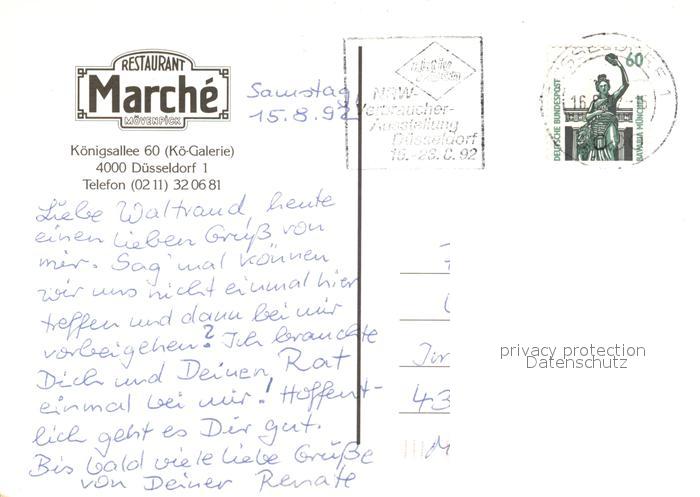 RESTAURANT
Marché
MÖVENPICK
Königsallee 60 (Kö-Galerie)
4000 Düsseldorf 1
Telefon (02 11) 32 06 81
Samstag
15.8.92
NRW-
Verbraucher-
Ausstellung
Düsseldorf
60
DEUTSCHE BUNDESPOST
BAVARIA MÜNCHEN
Liebe Waltraud, heute
einen lieben Gruß von
mir. Sag' mal können
wir uns nicht einmal hier
treffen und dann bei mir
vorbeigehen? Ich brauchte
Dich und Deinen Rat
einmal bei mir! Hoffent-
lich geht es Dir gut.
Bis bald viele liebe Grüße
von Deiner Renate
43
privacy protection
Datenschutz